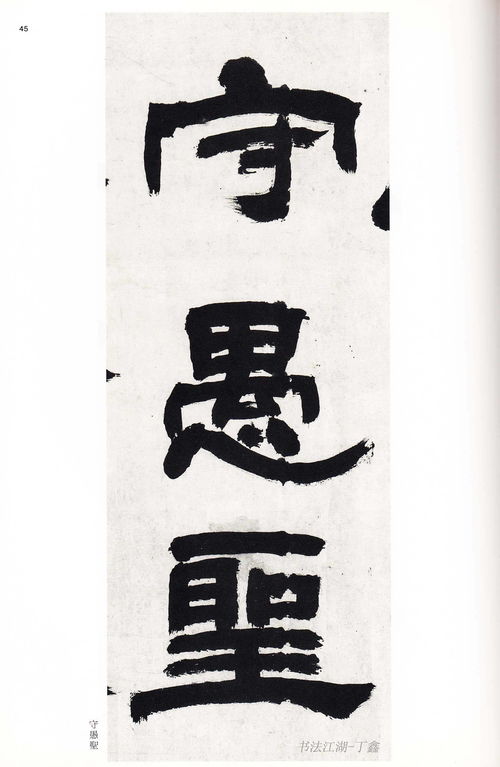 45
守愚聖
守愚聖
书法江湖-丁鑫